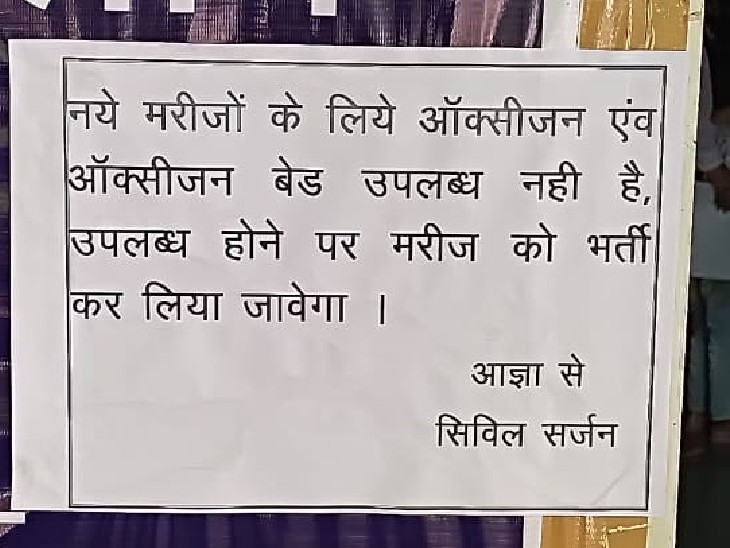 नये मरीजों के लिये ऑक्सीजन एंव
ऑक्सीजन बेड उपलब्ध नही है,
उपलब्ध होने पर मरीज को भर्ती
कर लिया जावेगा ।
आज्ञा से
सिविल सर्जन